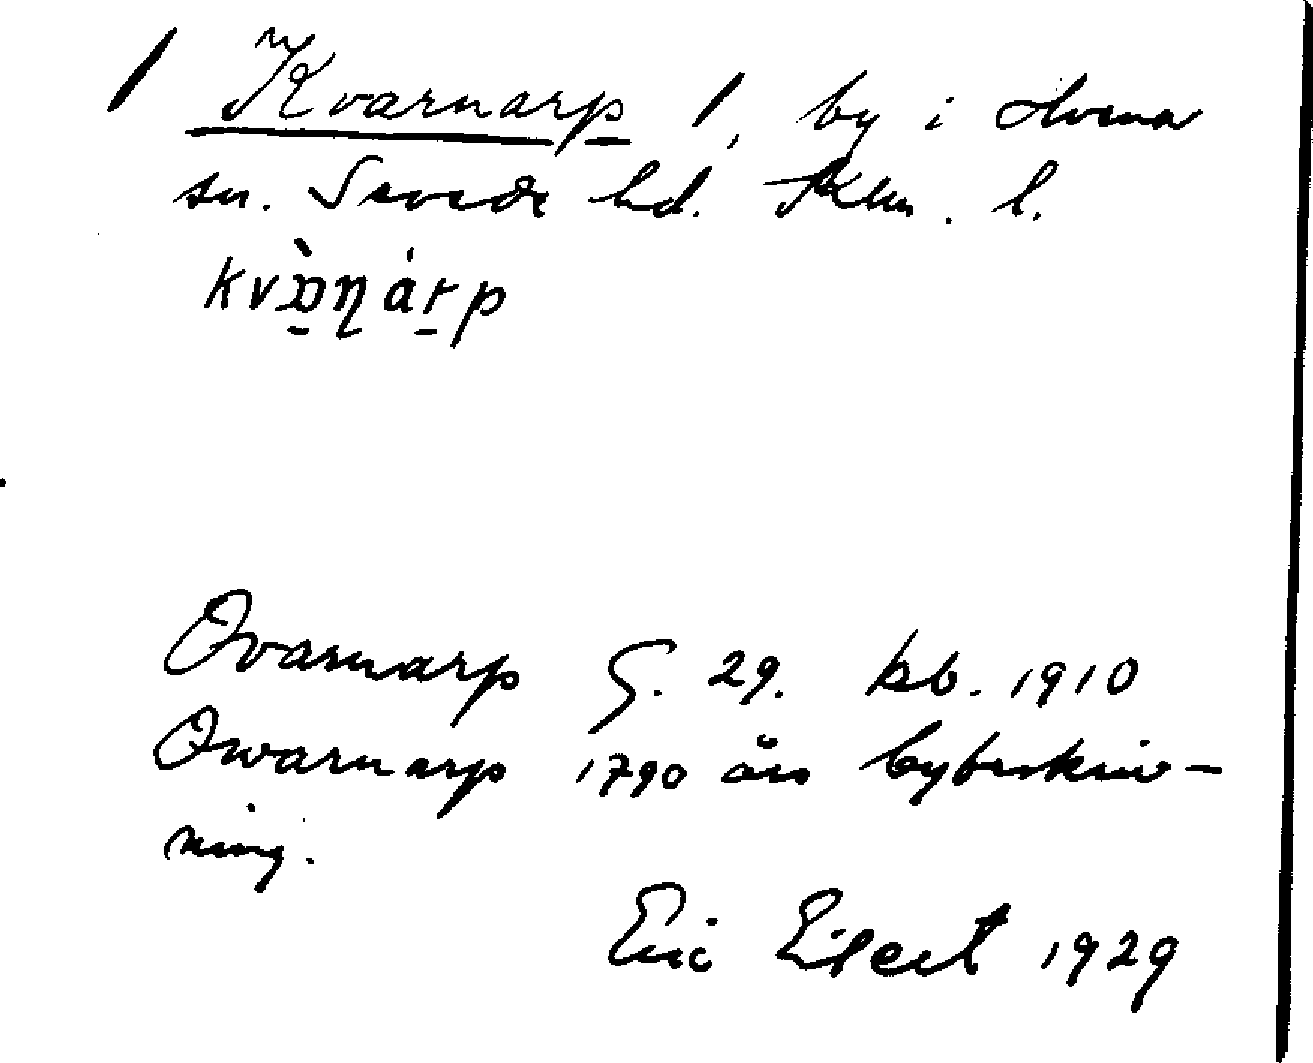 / Kvarnarp /, by i Hvena
sn. Sevede hd. Klm. l.
kvàṇárp
Qvarnarp G. 29. kb. 1910
Qwarnarp 1790 års bybeskriv-
ning.
Eric Elgert 1929